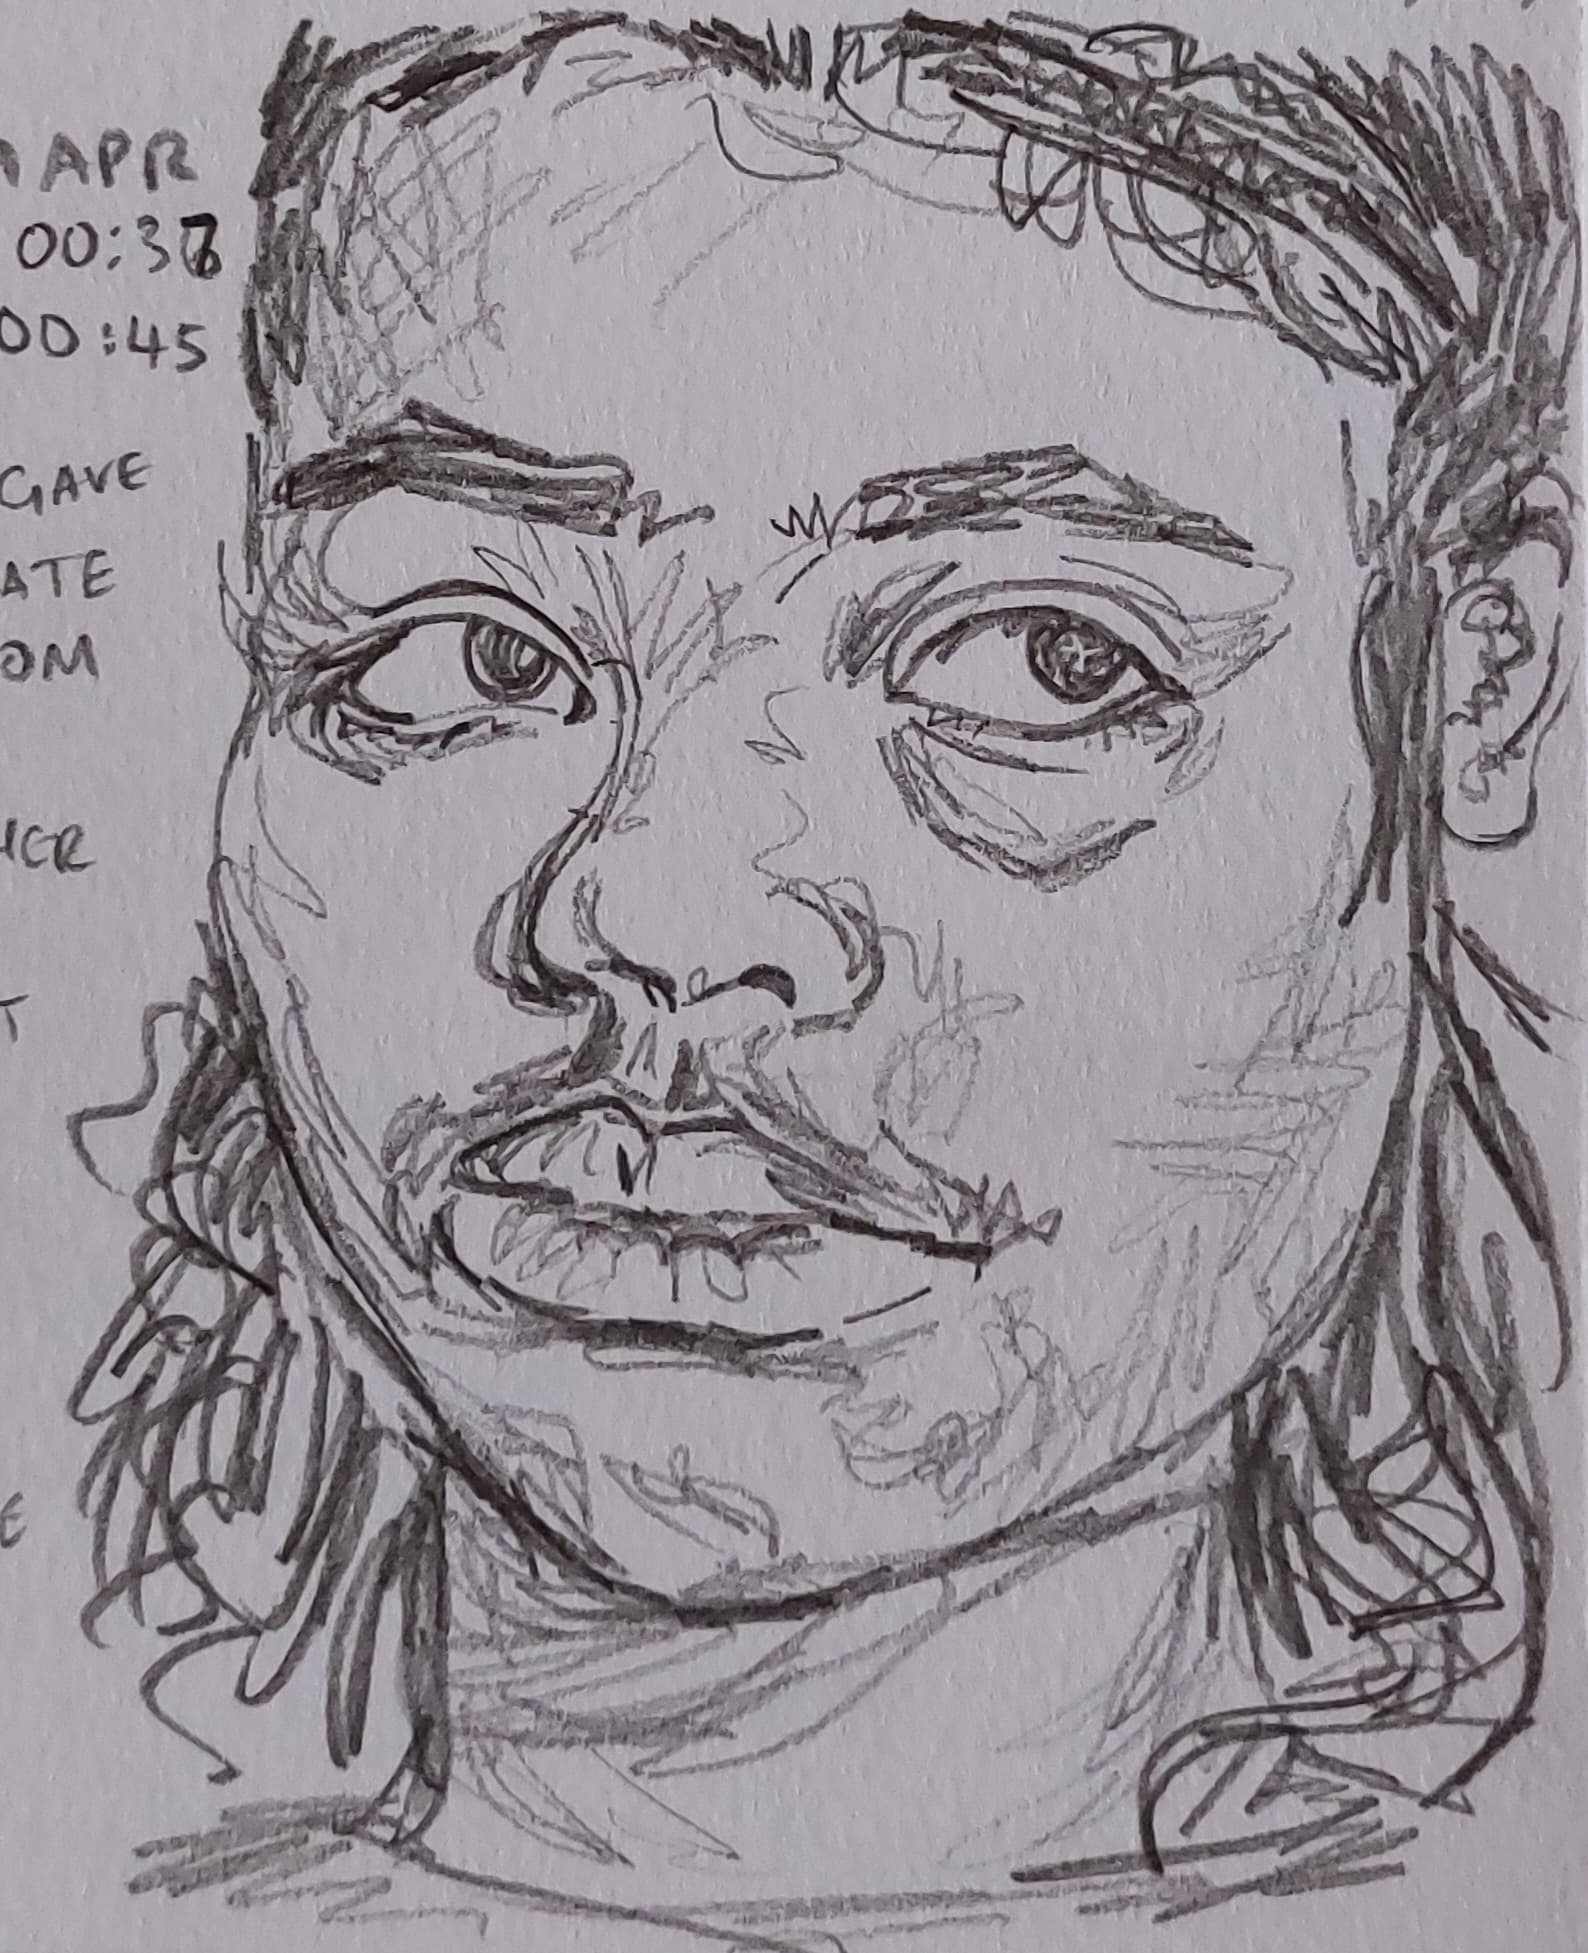 APR
00:37
00:45
GAVE
ATE
OM
HER
T
E